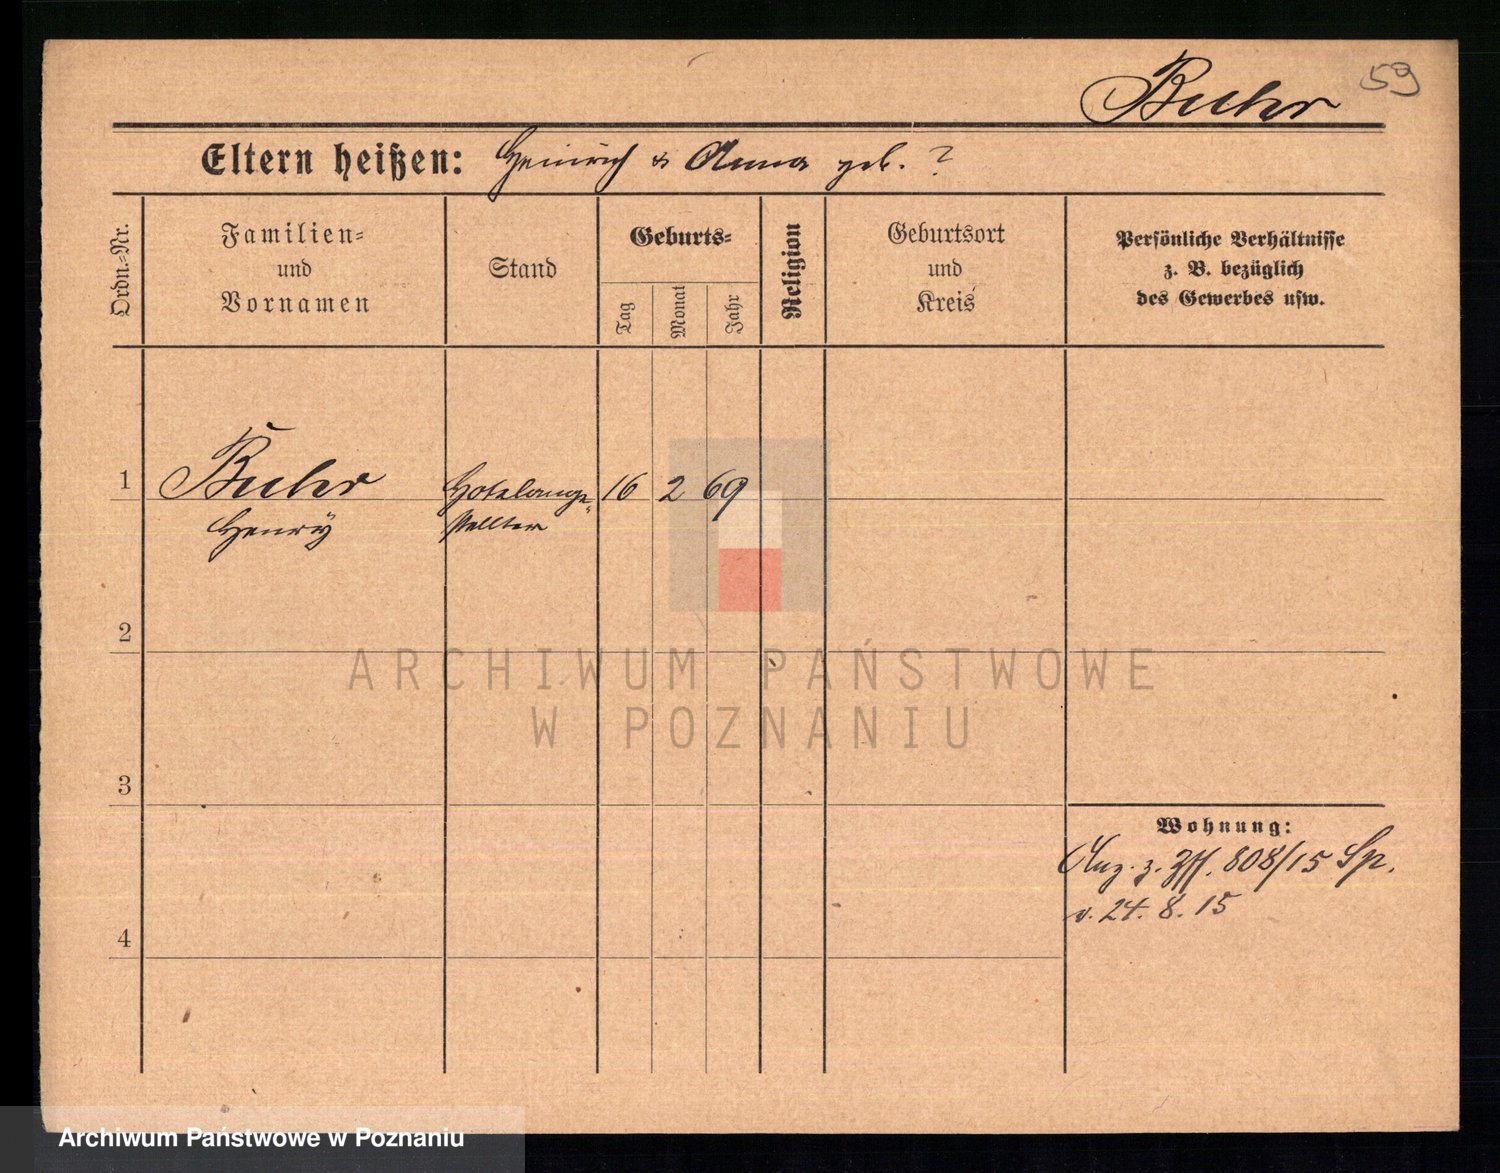 59
Buhr
Eltern heißen: Heinrich & Anna geb. ?
Ordn.=Nr.
Familien=
und
Vornamen
Stand
Geburts=
Tag
Monat
Jahr
Religion
Geburtsort
und
Kreis
Persönliche Verhältnisse
z. B. bezüglich
des Gewerbes usw.
1
Buhr
Henry
Hotelange=
stellter
16 2 69
2
3
4
Wohnung:
Anz. z. 808/15 Sp.
v. 24. 8. 15
ARCHIWUM PAŃSTWOWE
W POZNANIU
Archiwum Państwowe w Poznaniu